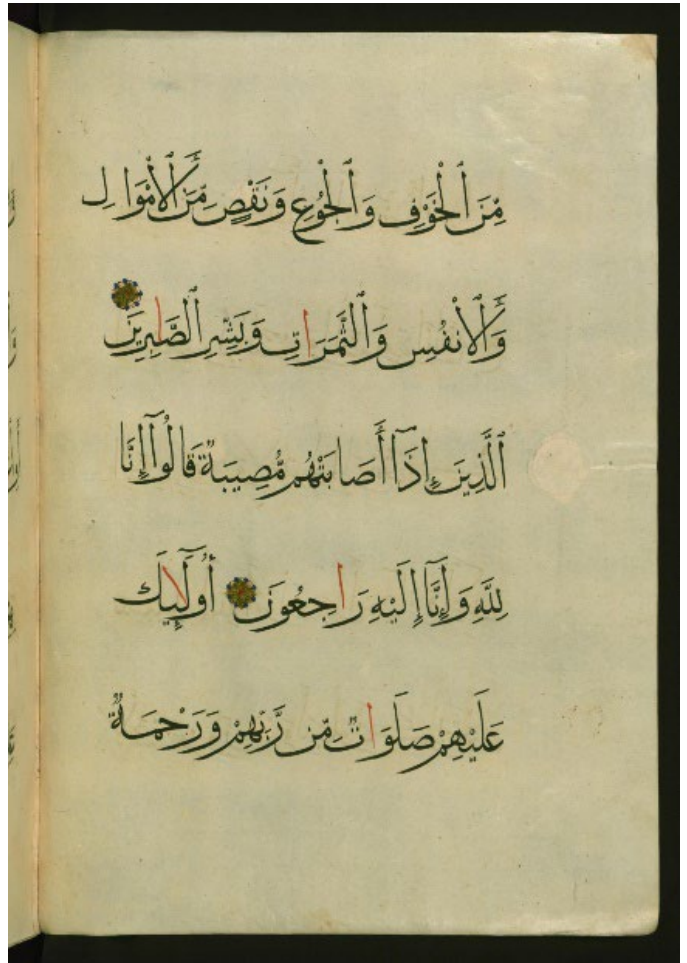 مِّنَ ٱلْخَوْفِ وَٱلْجُوعِ وَنَقْصٍ مِّنَ ٱلْأَمْوَالِ
وَٱلْأَنْفُسِ وَٱلثَّمَرَاتِ وَبَشِّرِ ٱلصَّابِرِينَ
ٱلَّذِينَ إِذَآ أَصَابَتْهُم مُّصِيبَةٌ قَالُوٓا۟ إِنَّا
لِلَّهِ وَإِنَّآ إِلَيْهِ رَاجِعُونَ أُو۟لَٰٓئِكَ
عَلَيْهِمْ صَلَوَاتٌ مِّن رَّبِّهِمْ وَرَحْمَةٌ